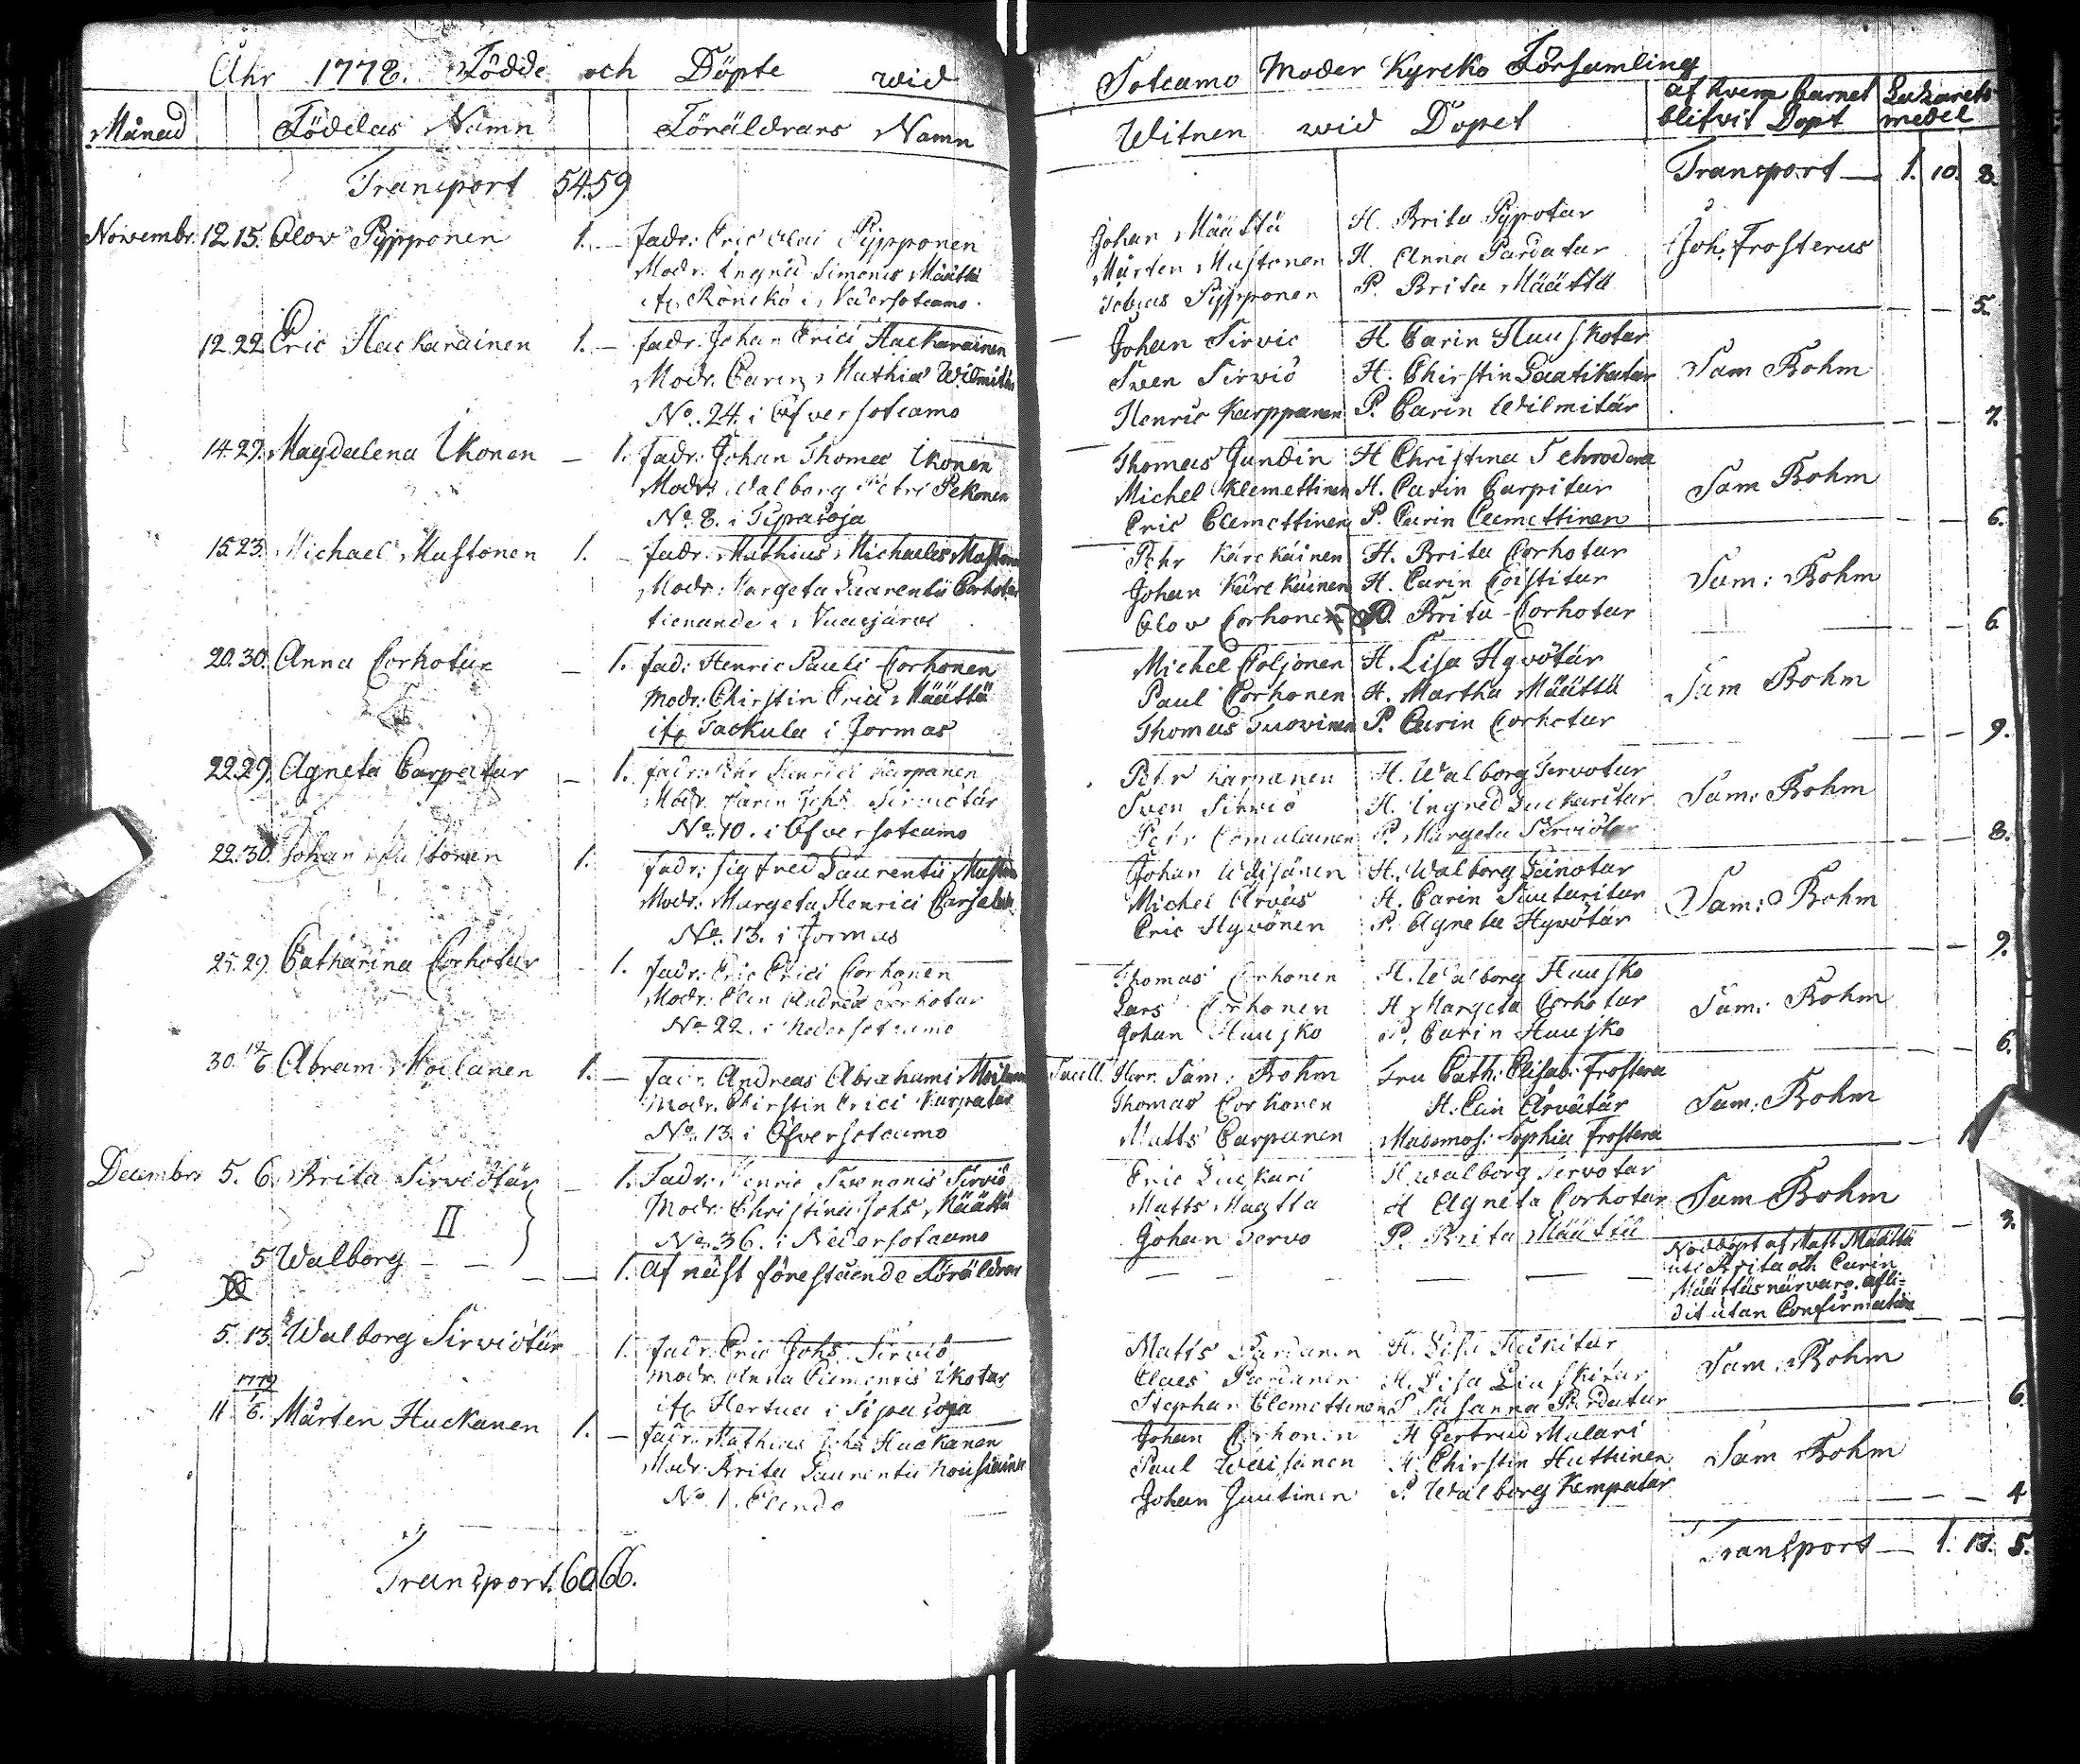 Åhr 1778. Födde och Döpte wid
MånadFöddas Namn Föräldrars Namn
Transport 54 59
Novembr. 12. 15. Olov Pypponen 1. — fadr: Eric Olai Pypponen
Modr. Ingrid Simonis Määttä
Rönckö i Nedersotcamo.
12. 22. Eric Hackarainen 1. — fadr. Johan Erici Hackarainen
Modr. Carin Mathiæ Wilmitär
No. 24. i Öfversotcamo
14. 27. Magdalena Ikonen — 1. fadr: Johan Thomæ Ikonen
Modr: Walborg Petri Pekonen
No. 8. i Tipasoja
15. 23. Michael Mustonen 1. — fadr: Mathias Michaelis Muston
Modr: Margeta Laurentii Corhotar
tienande i Naasjärvi
20. 30. Anna Corhotar — 1. fad: Henric Pauli Corhonen
Modr: Chirstin Erici Määttä
Tackula i Jormas
22. 29. Agneta Carpatar — 1. fadr: Pehr Henrici Karpanen
Modr. Carin Johs Sirviötär
No. 10. i Öfversotcamo
22. 30. Johan Mustonen 1. fadr: Sigfred Laurentii Muston
Modr: Margeta Henrici
No. 13. i Jormas
25. 29. Catharina Corhotar — 1. fadr: Eric Erici Corhonen
Modr: Elin Andreæ Corhotar
No. 22. i Nedersotcamo
30. 12/6 Abram Moilanen 1. — fadr. Andreas Abrahami Moilanen
Modr. Chirstin Erici Karpatar
No. 13. i Öfversotcamo
Decembr. 5. 6. Brita Sirviötär — 1. Fadr: Henric Swenonis Sirviö
II Modr: Christina Johs Määttä
No. 36. i Nedersotcamo
5 Walborg — — — — 1. Af näst förestående Föräldrar
5. 13. Walborg Sirviötär 1. fadr. Eric Johs Sirviö
Modr. Anna Clementis Ikotar
Hertua i Sipasoja
1779
11. 6. Mårten Huckanen 1. — fadr: Mathias Johs Huckanen
Modr: Brita Laurentii
No. 1.
Transport. 60 66.
Sotcamo Moder Kyrcko Församling
Witnen wid Dopet af hvem barnet blifvit Döpt Lazarets medel
Transport — 1. 10. 8.
Johan Määttä H. Brita Pypotar
Mårten Mustonen H. Anna Pardatar Joh. Frosterus
Tobias Pypponen P. Brita Määttä — — 5.
Johan Sirvio H Carin Hauskotar
Swen Sirviö H. Chirstin Sam Bohm
Henric Karppanen P. Carin Wilmitär — — 7.
Thomas Jundin H Christina Schrodera
Michel Klemettinen H. Carin Carpitar Sam Bohm
Eric Clemettinen P. Carin Clemettinen — — 6.
Pehr Kärckäinen H. Brita Corhotar
Johan Kärckäinen H. Carin Coistitar Sam: Bohm
Olov Corhonen P. Brita Corhotar — — 6
Michel Coljonen H. Lisa Hyvötär
Paul Corhonen H. Martha Määttä Sam Bohm
Thomas Tuovinen P. Carin Corhotar — — 9.
Petr Karpanen H. Walborg Tervotar
Sven Sirviö H. Ingred Luckaritar Sam: Bohm
Petr Comulainen P. Margeta Sirviötär — — 8.
Johan Wäisänen H. Walborg Leinotar
Michel Arväs H. Carin Sautaritar Sam: Bohm
Eric Hyvönen P. Agneta Hyvötär — — 9.
Thomas Corhonen H. Walborg Hausko
Lars Corhonen H Margeta Corhotar Sam: Bohm
Johan Hausko P. Carin Hausko — — 6.
Herr Sam: Bohm Fru Cath: Elisab: Frostera
Thomas Corhonen H. Arvätär Sam: Bohm
Matts Carpanen Mademos: Sophia Frostera —
Eric Luckari H Walborg Tervotar
Matts Määttä H Agneta Corhotar Sam Bohm
Johan Tervo P. Brita Määttä — 3.
— — — — Nöddöpt af Matt Määttä
uti Brita och Carin
Määttäs närvaro. afli=
dit utan Confirmation
Matts Pardanen H. Lisa
Claes Pardanen H. Lisa Sam: Bohm
Stephan Clemettinen P Susanna Pardatar — — 6.
Johan Corhonen H Gertrud Malari
Paul Wäisänen H. Chirstin Huttuinen Sam Bohm
Johan Juutinen P. Walborg Kempatar — — 4
Transport — 1. 17. 5.